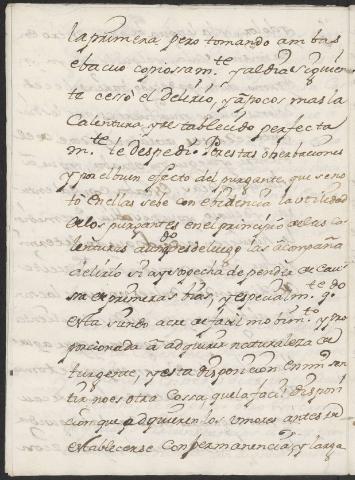 la primera pero tomando ambas
ebacuo copiossam.te y al dia siguien
te cessó el Delirio, y a pocos mas la
Calentura, y restablecido perfecta
m.te le despedi. Por estas observaciones
y por el buen efecto del purgante que se no
tó en ellas se be con evidencia la utilidad
de los purgantes en el principio de las ca
lenturas aunq.do desde luego las acompaña
delirio si se sospecha depender de cau
sa de primeras bias, y especialm.te q.do
esta siendo acre de facil mobim.to y pro
porcionada à adquirir naturaleza de
turgente, y esta disposicion en mi sen
tir no es otra cossa que la facil disposi
cion que adquieren los umores antes de
establecerse con permanencia, y larga